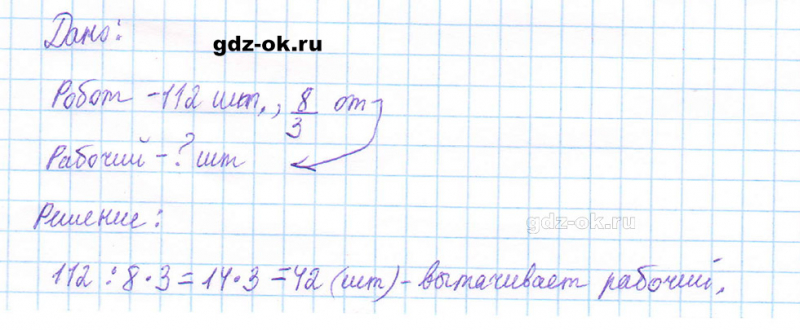 Дано:
gdz-ok.ru
Робот - 112 шт., 8/3 от
Рабочий - ? шт
Решение:
gdz-ok.ru
112 : 8 · 3 = 14 · 3 = 42 (шт) - вытачивает рабочий.